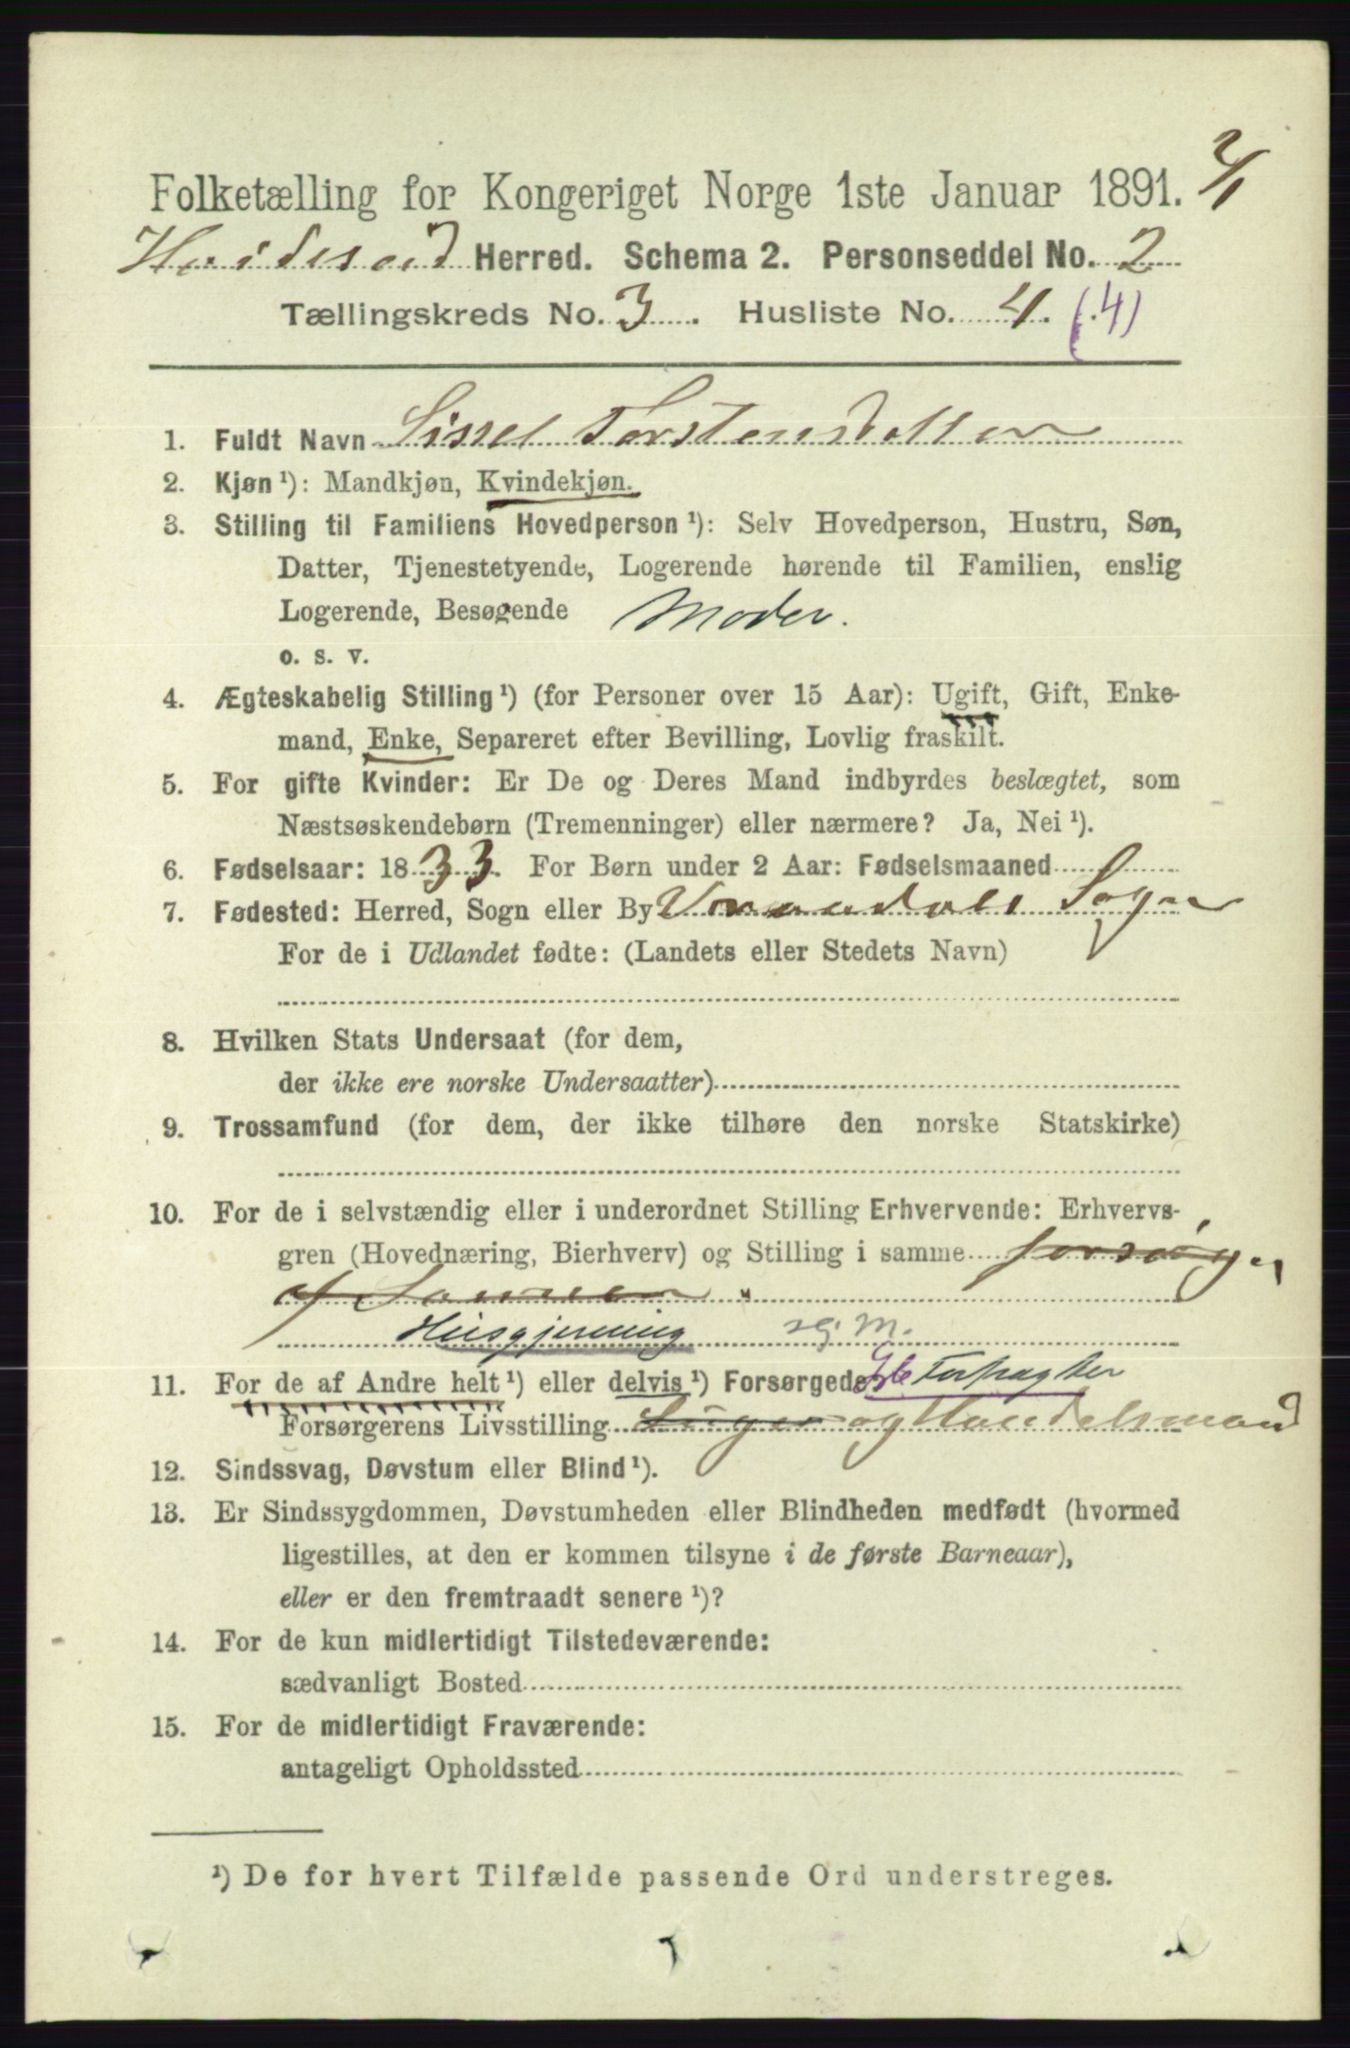 Folketælling for Kongeriget Norge 1ste Januar 1891. 2/1
Hvideseid Herred. Schema 2. Personseddel No. 2
Tællingskreds No. 3. Husliste No. 4. (4)
1. Fuldt Navn Sissel Torstensdatter
2. Kjøn ¹): Mandkjøn, Kvindekjøn.
3. Stilling til Familiens Hovedperson ¹): Selv Hovedperson, Hustru, Søn,
Datter, Tjenestetyende, Logerende hørende til Familien, enslig
Logerende, Besøgende Moder.
o. s. v.
4. Ægteskabelig Stilling ¹) (for Personer over 15 Aar): Ugift, Gift, Enke-
mand, Enke, Separeret efter Bevilling, Lovlig fraskilt.
5. For gifte Kvinder: Er De og Deres Mand indbyrdes beslægtet, som
Næstsøskendebørn (Tremenninger) eller nærmere? Ja, Nei ¹).
6. Fødselsaar: 1833. For Børn under 2 Aar: Fødselsmaaned
7. Fødested: Herred, Sogn eller By Vraadals Sogn
For de i Udlandet fødte: (Landets eller Stedets Navn)
8. Hvilken Stats Undersaat (for dem,
der ikke ere norske Undersaatter)
9. Trossamfund (for dem, der ikke tilhøre den norske Statskirke)
10. For de i selvstændig eller i underordnet Stilling Erhvervende: Erhvervs-
gren (Hovednæring, Bierhverv) og Stilling i samme forsørges
af Sønnen
Husgjerning
11. For de af Andre helt ¹) eller delvis ¹) Forsørgede: Forpagter
Forsørgerens Livsstilling og Handelsmand
12. Sindssvag, Døvstum eller Blind ¹).
13. Er Sindssygdommen, Døvstumheden eller Blindheden medfødt (hvormed
ligestilles, at den er kommen tilsyne i de første Barneaar),
eller er den fremtraadt senere ¹)?
14. For de kun midlertidigt Tilstedeværende:
sædvanligt Bosted
15. For de midlertidigt Fraværende:
antageligt Opholdssted
¹) De for hvert Tilfælde passende Ord understreges.